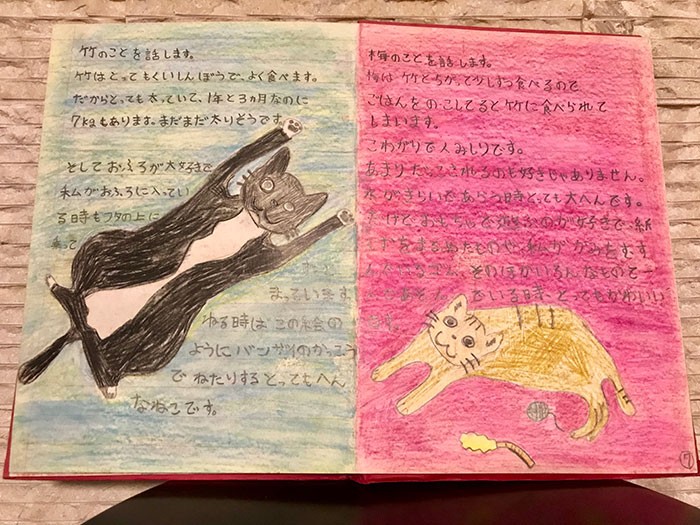 竹のことを話します。
竹はとってもくいしんぼうで、よく食べます。
だからとっても太っていて、1年と3ヵ月なのに
7kgもあります。まだまだ太りそうです。
そしておふろが大好きで
私がおふろに入ってい
る時もフタの上に
乗って
まっています。
ねる時はこの絵の
ようにバンザイのかっこう
でねたりするとってもへん
なねこです。
梅のことを話します。
梅は竹とちがって少しずつ食べるので
ごはんをのこしてると竹に食べられて
しまいます。
こわがりで人みしりです。
あまりだっこされるのも好きじゃありません。
水がきらいであらう時とっても大へんです。
だけど、おもちゃで遊ぶのが好きで、紙
をまるめたものや、私がかみをむす
ゴム、そのほかいろんなものと一
いる時、とってもかわいい
です。
7